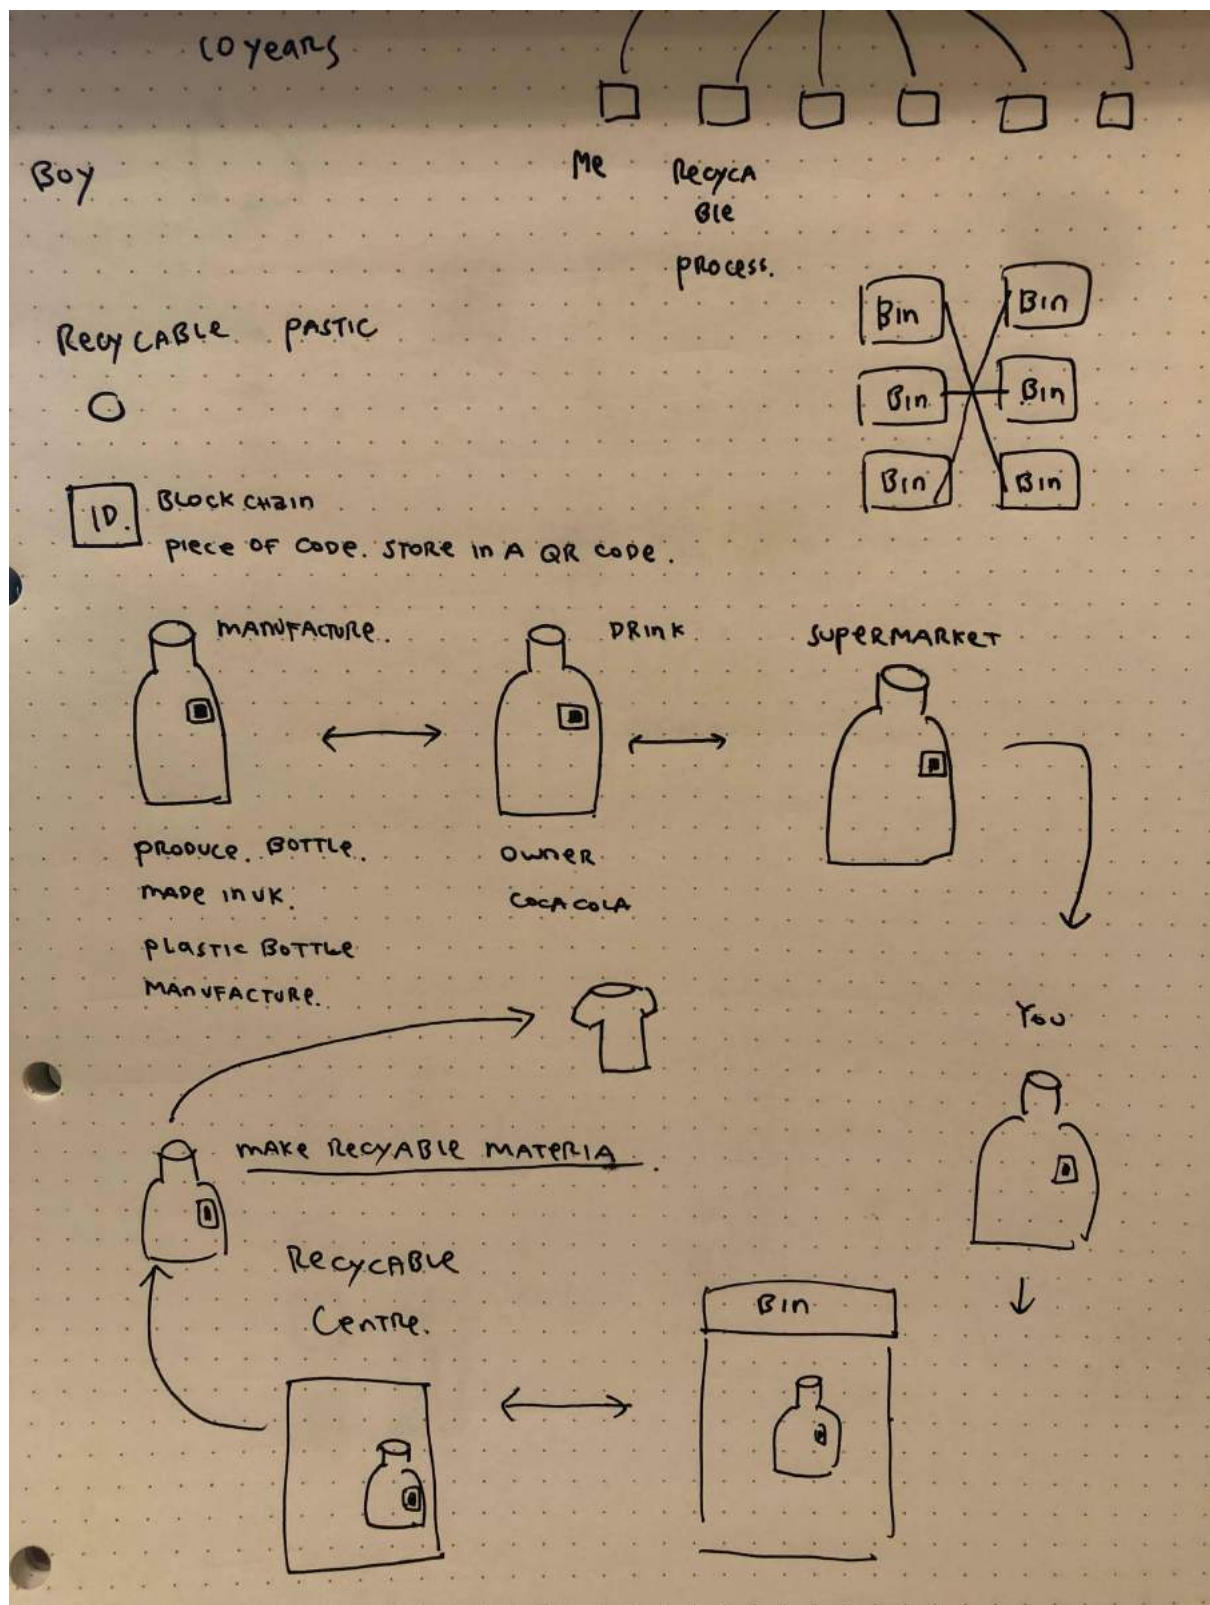 10 years
Boy
Me
Recyca
ble
process.
Recycable pastic
Bin
Bin
Bin
Bin
Bin
Bin
ID.
Block chain
piece of code. store in a QR code.
manufacture.
Drink
supermarket
produce. Bottle.
made in UK.
plastic Bottle
manufacture.
owner
coca cola
You
make Recyable materia
Recycable
Centre.
Bin